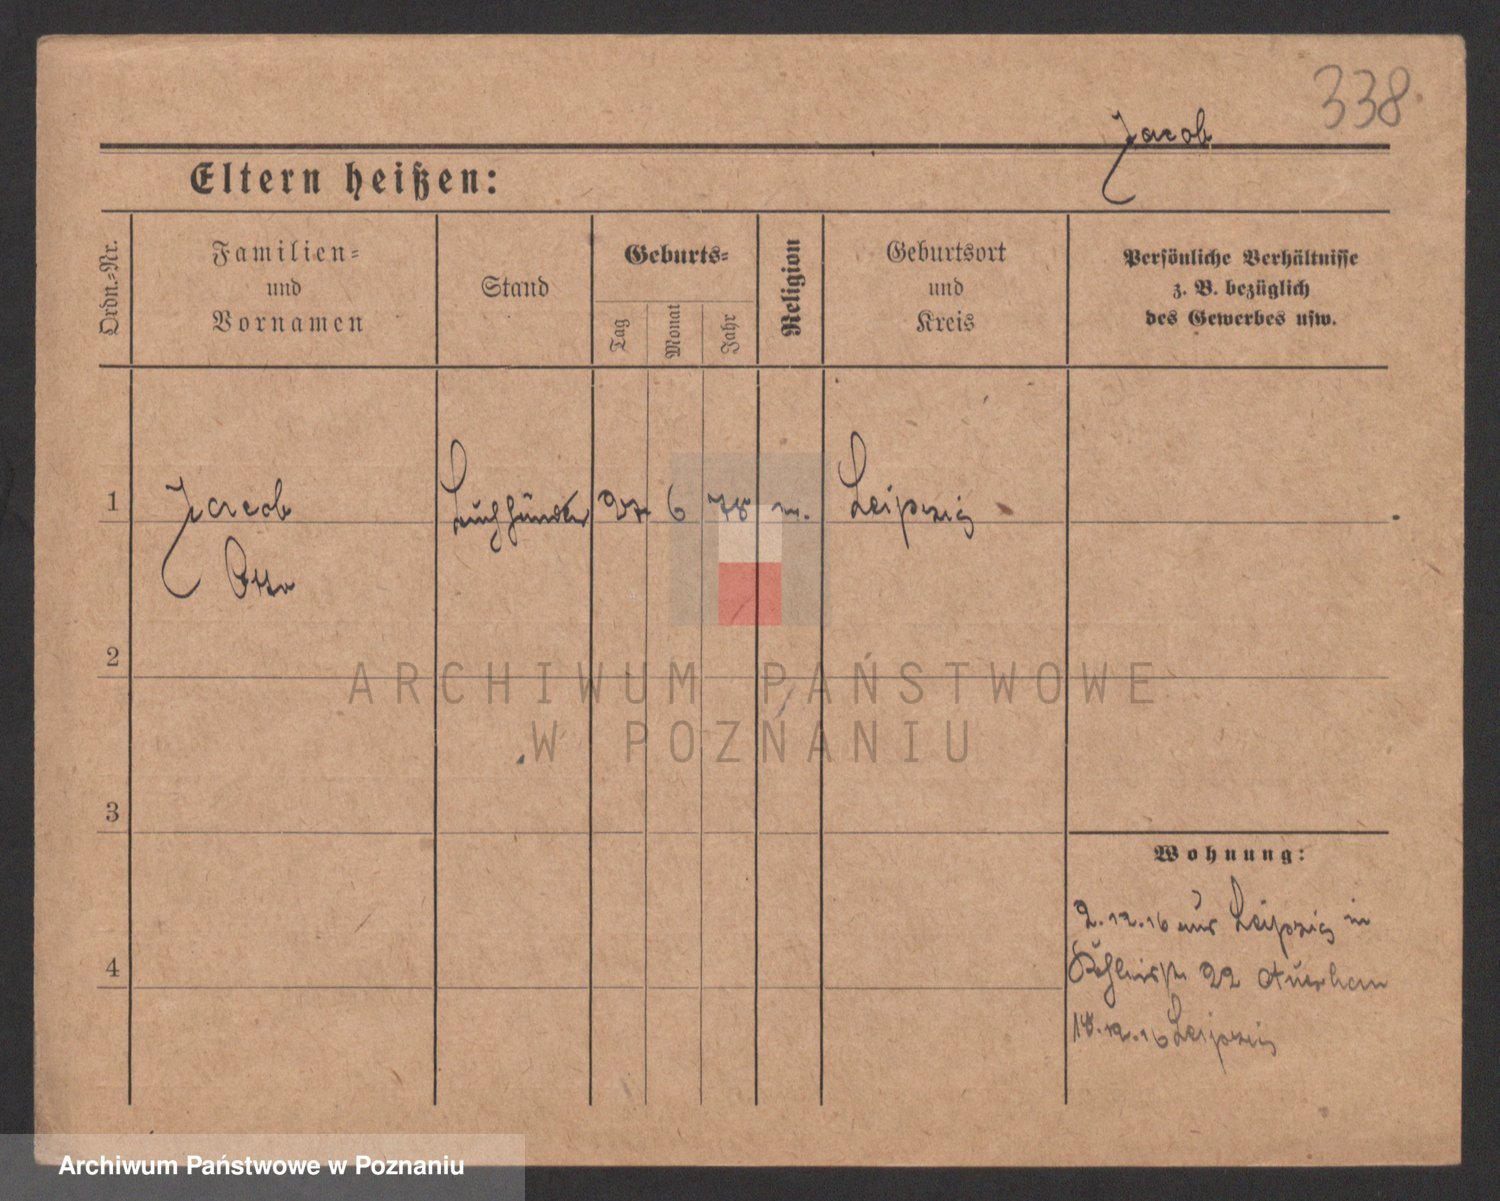 338
Jacob
Eltern heißen:
Ordn.-Nr.
Familien-
und
Vornamen
Stand
Geburts-
Tag
Monat
Jahr
Religion
Geburtsort
und
Kreis
Persönliche Verhältnisse
z. B. bezüglich
des Gewerbes usw.
1
Jacob
Otto
27 6 78 m. Leipzig
2
ARCHIWUM PAŃSTWOWE
W POZNANIU
3
Wohnung:
2.12.16 aus Leipzig in
22
4
18.12.16 Leipzig
Archiwum Państwowe w Poznaniu